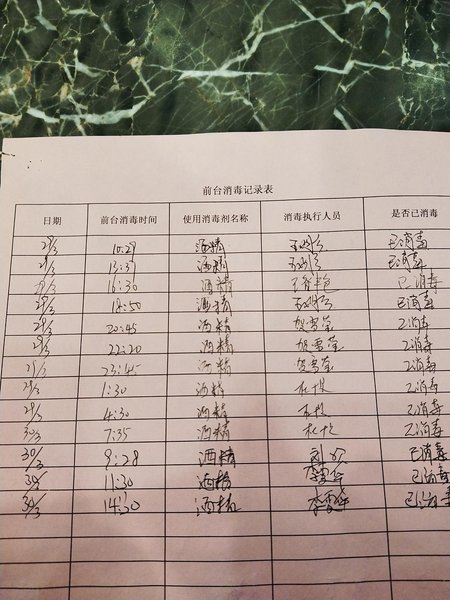 前台消毒记录表
日期 前台消毒时间 使用消毒剂名称 消毒执行人员 是否已消毒
29/3 10:29 酒精 已消毒
29/3 13:37 酒精 已消毒
29/3 16:30 酒精 已消毒
29/3 18:50 酒精 已消毒
29/3 20:45 酒精 贺雪莹 已消毒
29/3 22:20 酒精 贺雪莹 已消毒
29/3 23:45 酒精 贺雪莹 已消毒
29/3 1:30 酒精 已消毒
29/3 4:30 酒精 已消毒
30/3 7:35 酒精 已消毒
30/3 9:28 酒精 已消毒
30/3 11:30 酒精 李雪华 已消毒
30/3 14:30 酒精 李雪华 已消毒